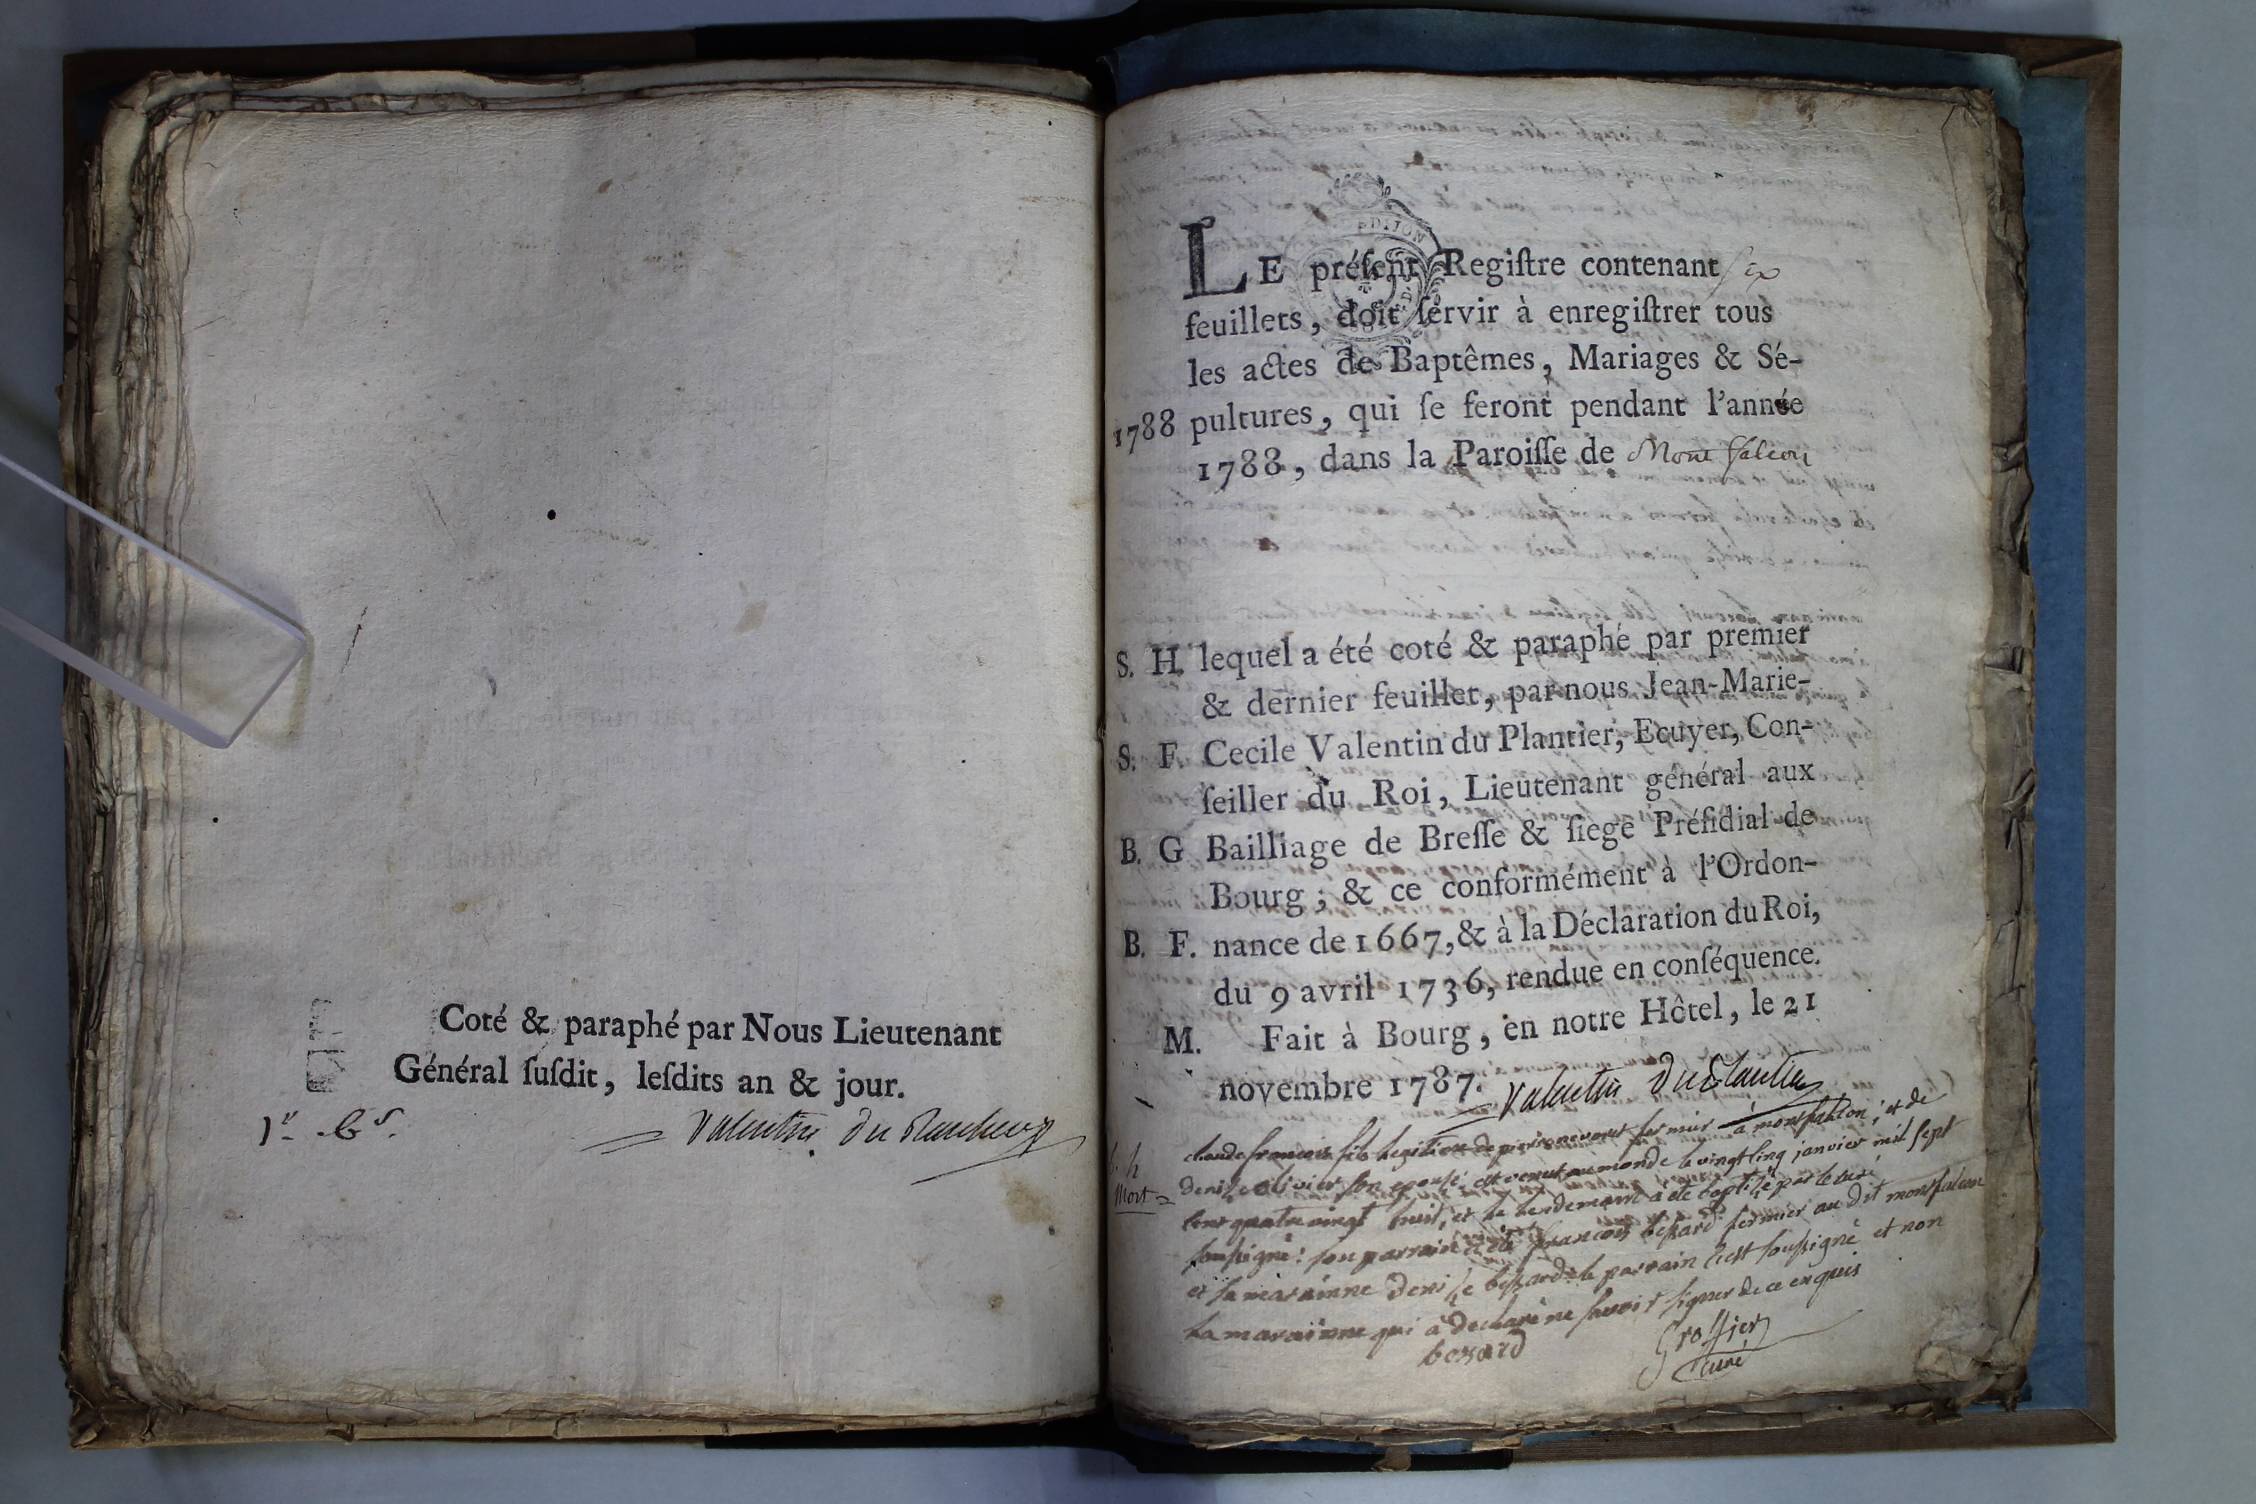 Coté & paraphé par Nous Lieutenant
Général ſuſdit, leſdits an & jour.
Valentin Du
EDIJON
LE préſent Regiſtre contenant ſix
feuillets, doit ſervir à enregiſtrer tous
les actes de Baptêmes, Mariages & Sé-
1788 pultures, qui ſe feront pendant l'année
1788, dans la Paroiſſe de Mont falcon
S. H. lequel a été coté & paraphé par premier
& dernier feuillet, par nous Jean-Marie-
S. F. Cecile Valentin du Plantier, Ecuyer, Con-
ſeiller du Roi, Lieutenant général aux
B. G Bailliage de Breſſe & ſiege Préſidial de
Bourg; & ce conformément à l'Ordon-
B. F. nance de 1667, & à la Déclaration du Roi,
du 9 avril 1736, rendue en conſéquence.
M. Fait à Bourg, en notre Hôtel, le 21
novembre 1787. Valentin DuPlantier
claude francois fils legitime de pierre fermier à montfalcon, et de
Mort
deniſe olivier ſon epouſe est venut au monde le vingt cinq janvier mil ſept
cent quatre vingt huit, et le lendemain a été baptiſé par le curé
ſouſsigné: ſon parrain a été francois beſsard fermier au dit montfalcon
et ſa maraine deniſe beſsard le parrain s'est ſouſsigné et non
la maraine qui a declaré ne ſavoir ſigner de ce enquis
Groſſier
curé